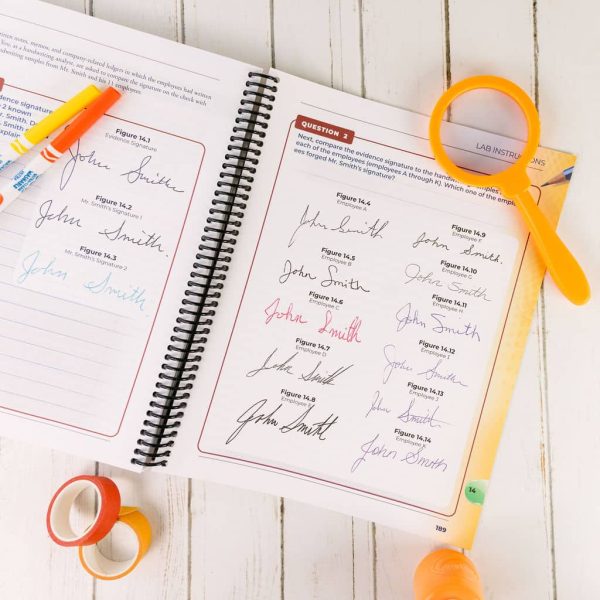 written notes, memos, and company-related ledgers in which the employees had written
You, as a handwriting analyst, are asked to compare the signature on the check with
handwriting samples from Mr. Smith and his 11 employees.
Figure 14.1
Evidence Signature
John Smith
Figure 14.2
Mr. Smith's Signature 1
John Smith.
Figure 14.3
Mr. Smith's Signature 2
John Smith.
QUESTION 2
LAB INSTRUCTIONS
Next, compare the evidence signature to the
each of the employees (employees A through K). Which one of the
ees forged Mr. Smith's signature?
Figure 14.4
Employee A
John Smith
Figure 14.5
Employee B
John Smith
Figure 14.6
Employee C
John Smith
Figure 14.7
Employee D
John Smith
Figure 14.8
Employee E
John Smith
Figure 14.9
John Smith.
Figure 14.10
Employee G
John Smith
Figure 14.11
Employee H
John Smith
Figure 14.12
Employee I
John Smith
Figure 14.13
Employee J
John Smith
Figure 14.14
Employee K
John Smith
14
189